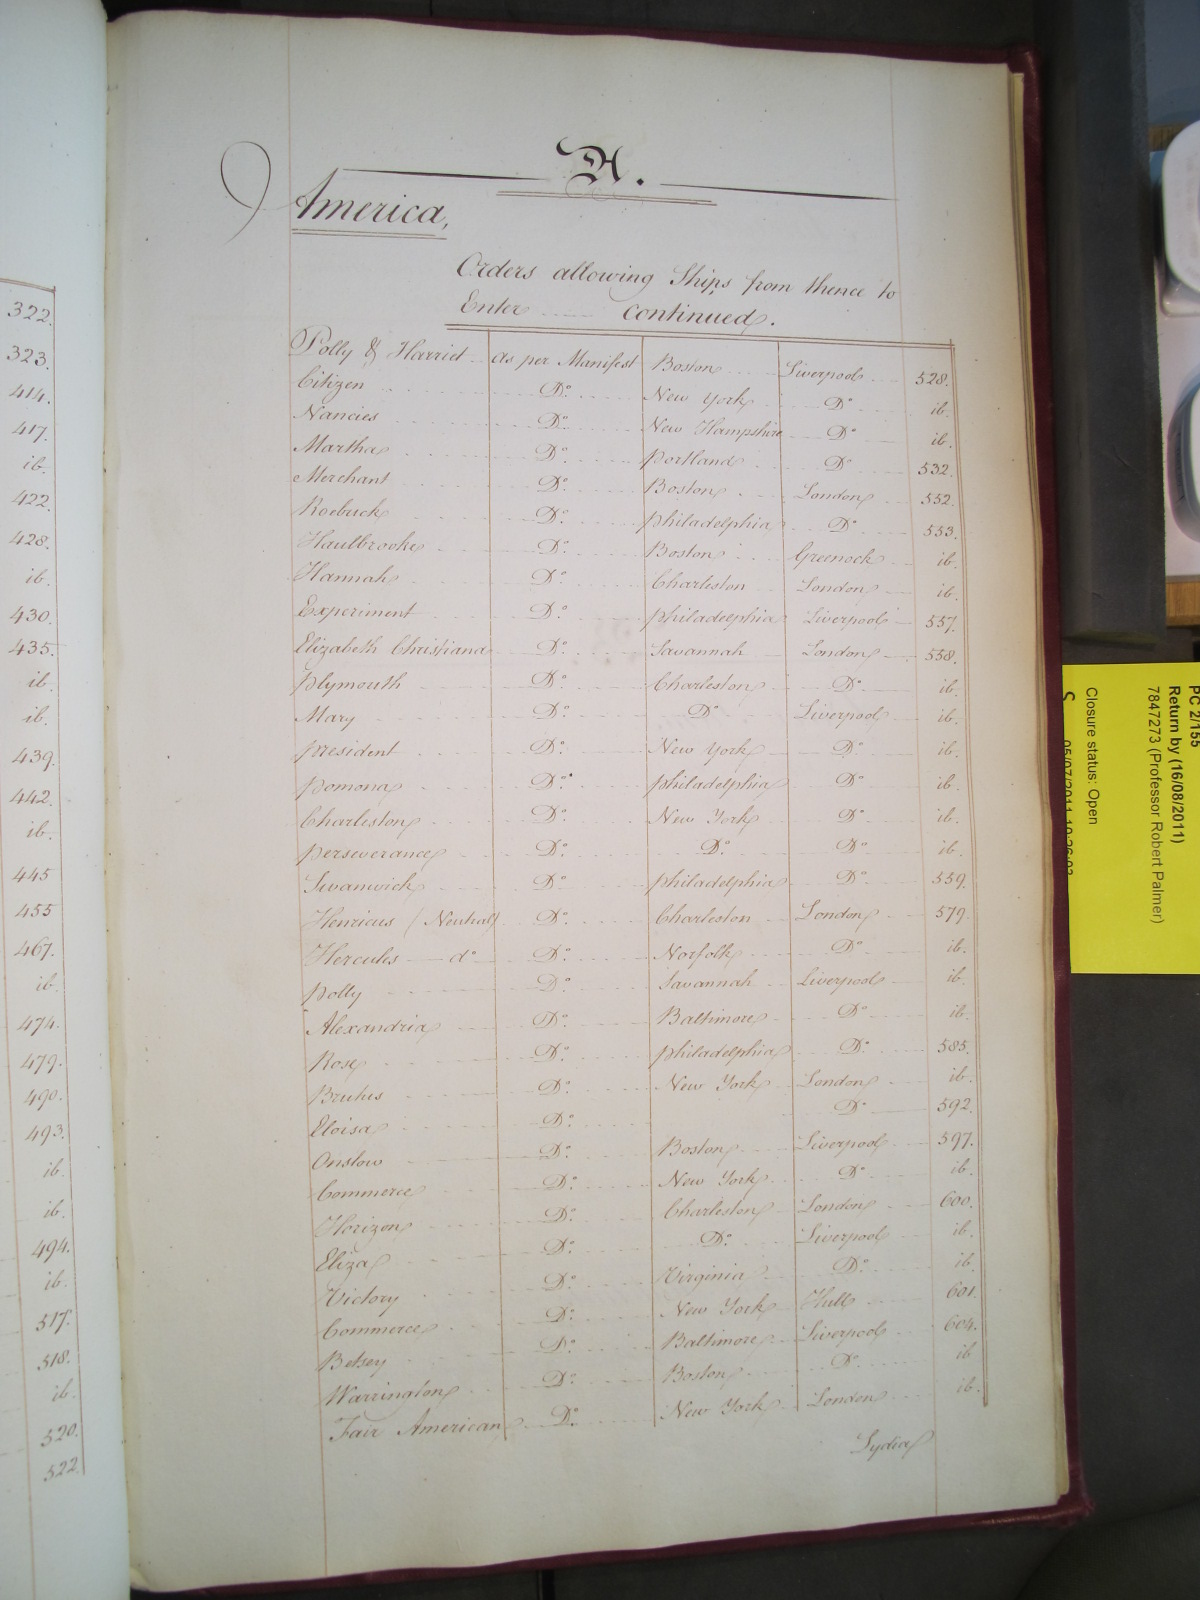 322.
323.
414.
417.
ib.
422.
428.
ib.
430.
435.
ib.
ib.
439.
442.
ib.
445
455
467.
ib.
474.
479.
490.
493.
ib.
ib.
494.
ib.
517.
518.
ib.
520.
522.
A.
America,
Orders allowing Ships from thence to
Enter continued.
Polly & Harriet as per Manifest Boston Liverpool 528.
Citizen Do. New York Do ib.
Nancies Do. New Hampshire Do ib.
Martha Do. Portland Do 532.
Merchant Do. Boston London 552.
Roebuck Do. Philadelphia Do 553.
Haulbrooke Do. Boston Greenock ib.
Hannah Do. Charleston London ib.
Experiment Do. Philadelphia Liverpool 557.
Elizabeth Christiana Do. Savannah London 558.
Plymouth Do. Charleston Do ib.
Mary Do. Do Liverpool ib.
President Do. New York Do ib.
Pomona Do. Philadelphia Do ib.
Charleston Do. New York Do ib.
Perseverance Do. Do. Do ib.
Swanwick Do. Philadelphia Do 559.
Henricus (Neutral) Do. Charleston London 579.
Hercules do Do. Norfolk Do ib.
Polly Do. Savannah Liverpool ib.
Alexandria Do. Baltimore Do ib.
Rose Do. Philadelphia Do 585.
Brutus Do. New York London ib.
Eloisa Do. Do 592.
Onslow Do. Boston Liverpool 597.
Commerce Do. New York Do. ib.
Horizon Do. Charleston London 600.
Eliza Do. Do. Liverpool ib.
Victory Do. Virginia Do. ib.
Commerce Do. New York Hull 601.
Betsey Do. Baltimore Liverpool 604.
Warrington Do. Boston Do. ib.
Fair American Do. New York London ib.
Lydia
PC 2/155
Return by (16/08/2011)
7847273 (Professor Robert Palmer)
Closure status: Open